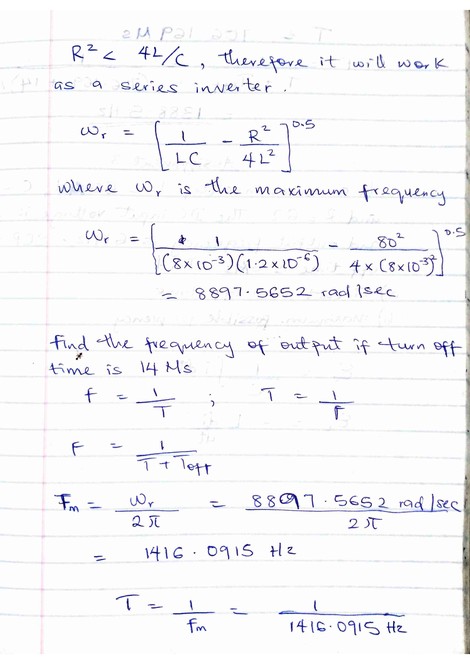 R² < 4L/C, therefore it will work
as a series inverter.
ωr = [1/LC − R²/4L²]^0.5
where ωr is the maximum frequency
ωr = [1/(8×10⁻³)(1.2×10⁻⁶) − 80²/4×(8×10⁻³)²]^0.5
= 8897.5652 rad/sec
find the frequency of output if turn off
time is 14 Ms
f = 1/T ; T = 1/F
F = 1/T + Toff
Fm = ωr/2π = 8897.5652 rad/sec/2π
= 1416.0915 Hz
T = 1/fm = 1/1416.0915 Hz